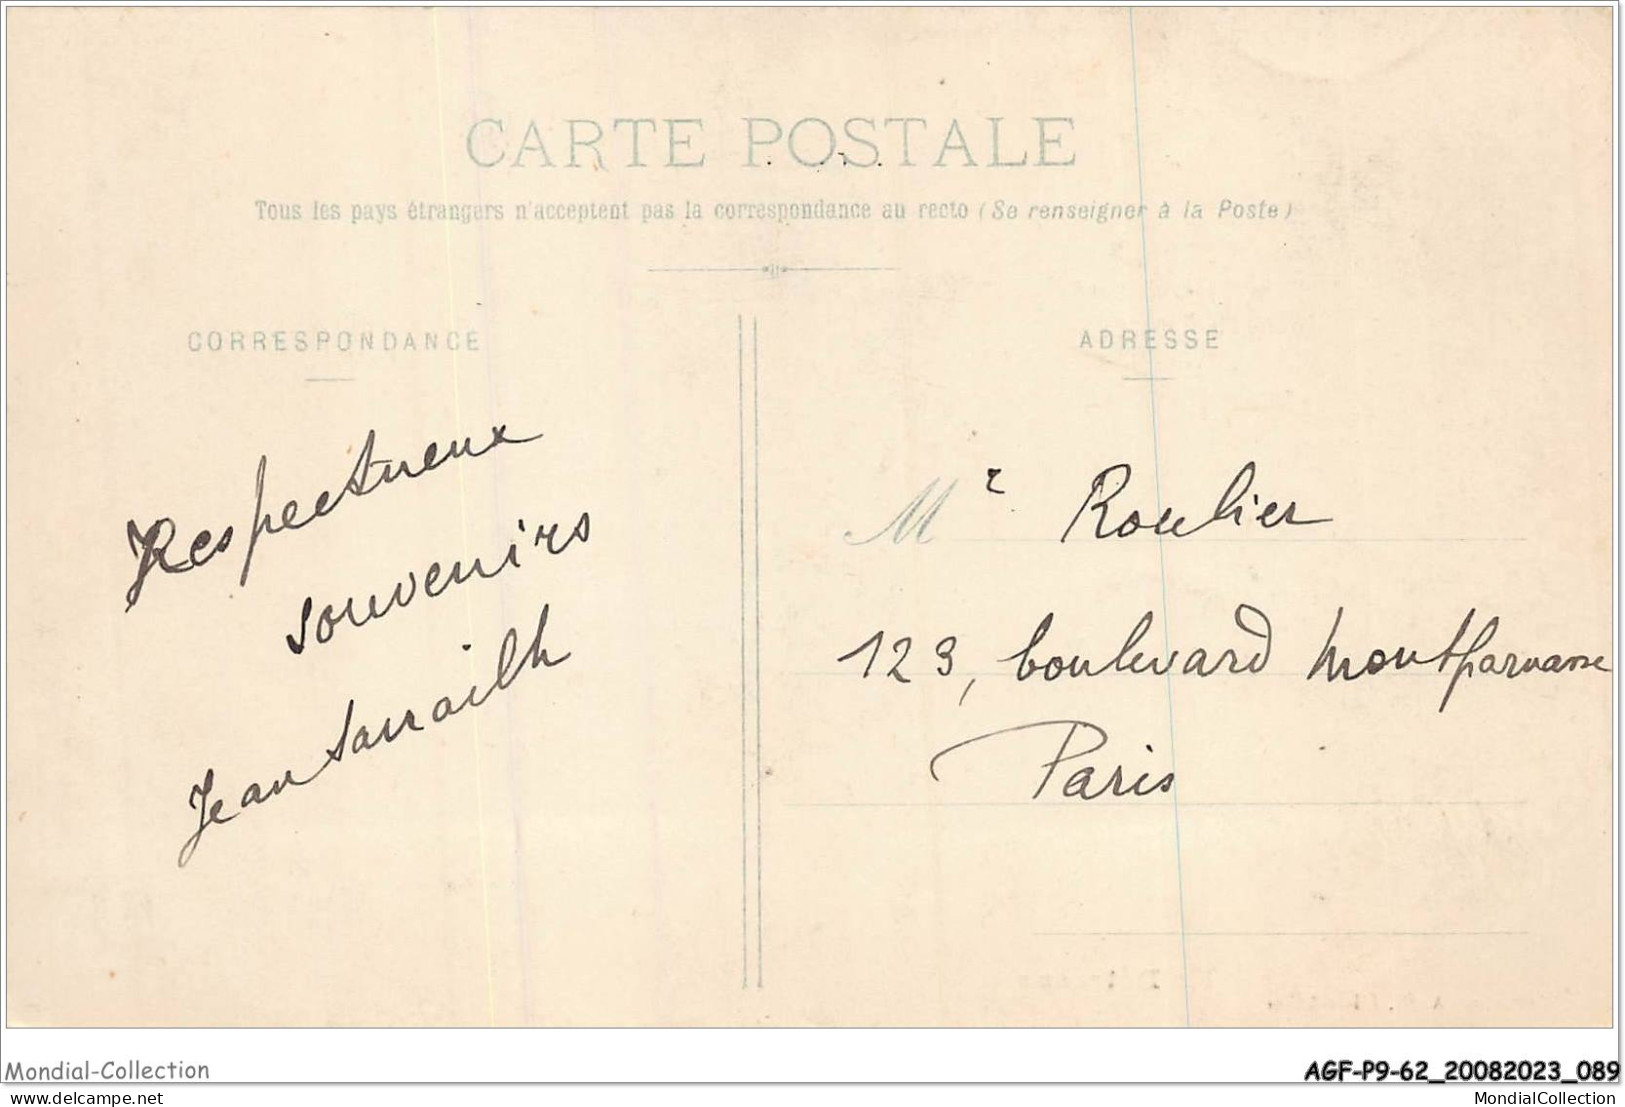 CARTE POSTALE
Tous les pays étrangers n'acceptent pas la correspondance au recto (Se renseigner à la Poste)
CORRESPONDANCE
ADRESSE
Respectueux
souvenirs
Jean Sarrailh
Mr Roulier
123, boulevard Montparnasse
Paris
Mondial-Collection
AGF-P9-62_20082023_089
delcampe.net
MondialCollection